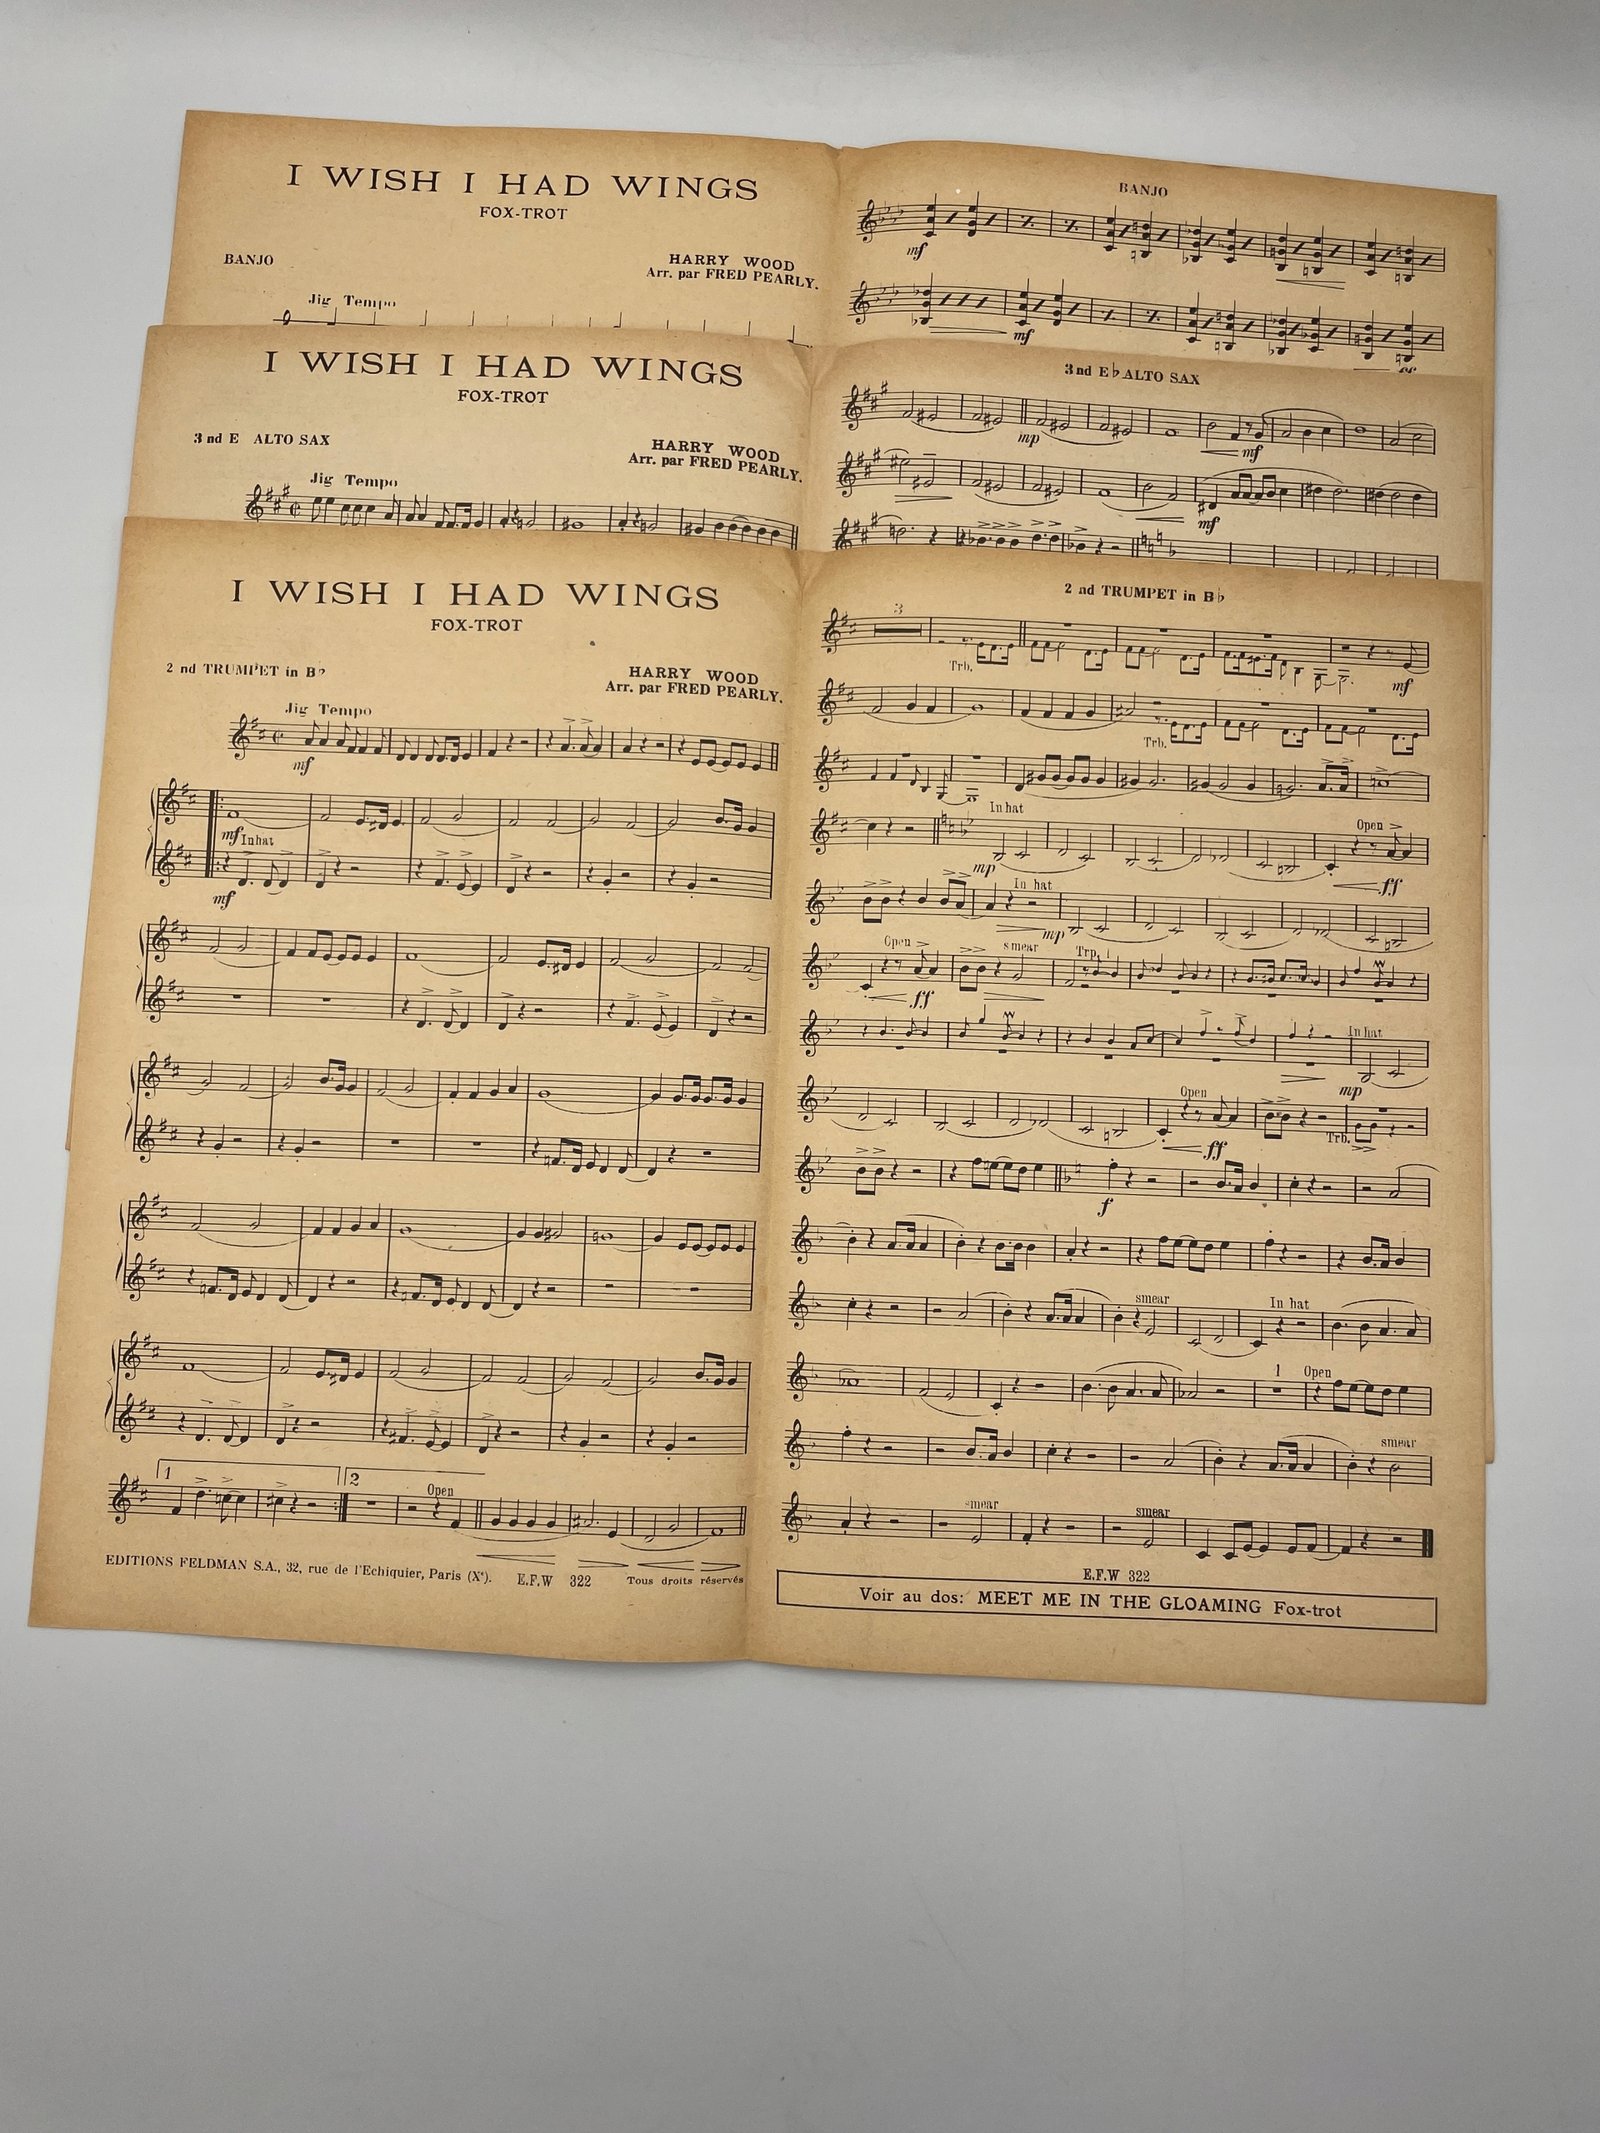 I WISH I HAD WINGS
FOX-TROT
BANJO
HARRY WOOD
Arr. par FRED PEARLY.
Jig Tempo
BANJO
mf
mf
I WISH I HAD WINGS
FOX-TROT
3 nd E ALTO SAX
HARRY WOOD
Arr. par FRED PEARLY.
Jig Tempo
3 nd E♭ ALTO SAX
mp
mf
mf
I WISH I HAD WINGS
FOX-TROT
2 nd TRUMPET in B♭
HARRY WOOD
Arr. par FRED PEARLY.
Jig Tempo
mf
mf In hat
mf
1
2
Open
EDITIONS FELDMAN S.A., 32, rue de l'Echiquier, Paris (Xe). E.F.W 322 Tous droits réservés
2 nd TRUMPET in B♭
3
Trb.
mf
Trb.
In hat
Open
mp
ff
In hat
mp
Open
smear
Trp.
ff
In hat
mp
Open
ff
Trb.
f
smear
In hat
1
Open
smear
smear
smear
E.F.W 322
Voir au dos: MEET ME IN THE GLOAMING Fox-trot